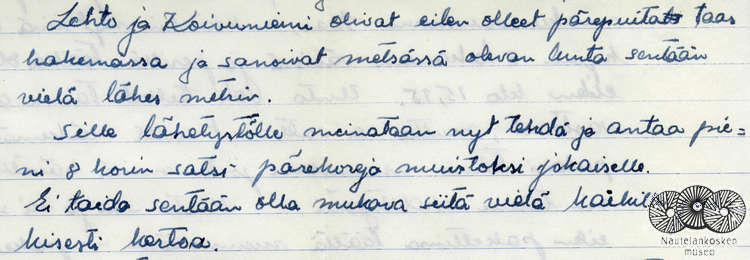 Lehto ja Koivuniemi olivat eilen olleet pärepuita taas
hakemassa ja sanoivat metsässä olevan lunta sentään
vielä lähes metrin.
Sille lähetystölle meinataan nyt tehdä ja antaa pie=
ni 8 korin satsi pärekoreja muistoksi jokaiselle.
Ei taida sentään olla mukava siitä vielä kaikil
kisesti kertoa.
Nautelankosken
museo